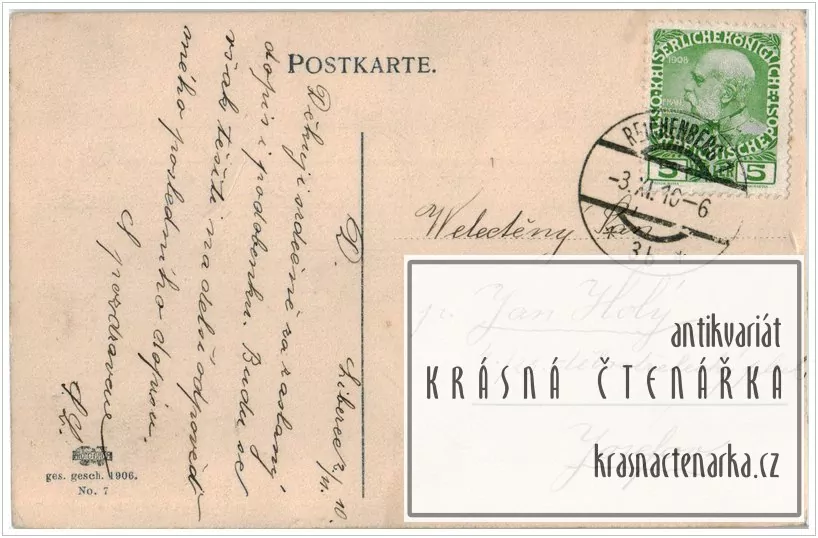 POSTKARTE.
KAISERLICHE KÖNIGLICHE ÖSTERREICHISCHE POST
1908
5 5
REICHENBERG
-3.XI.10-6
3b *
Liberec 2/11. 10.
Děkuji srdečně za zaslaný
dopis i podobenku. Budu se
však těšiti na delší odpověď
mého posledního dopisu.
S pozdravem
Weletěný Pán
p. Jan Holý
Josefov
ges. gesch. 1906.
No. 7
antikvariát
KRÁSNÁ ČTENÁŘKA
krasnactenarka.cz